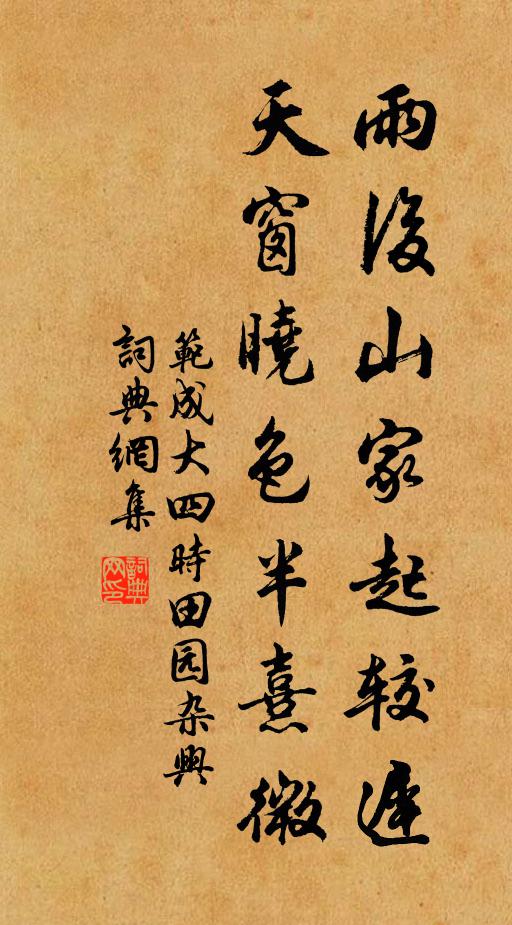 雨後山家起较遲
天窗曉色半熹微
範成大四時田园杂興
詞典網集
詞典网印